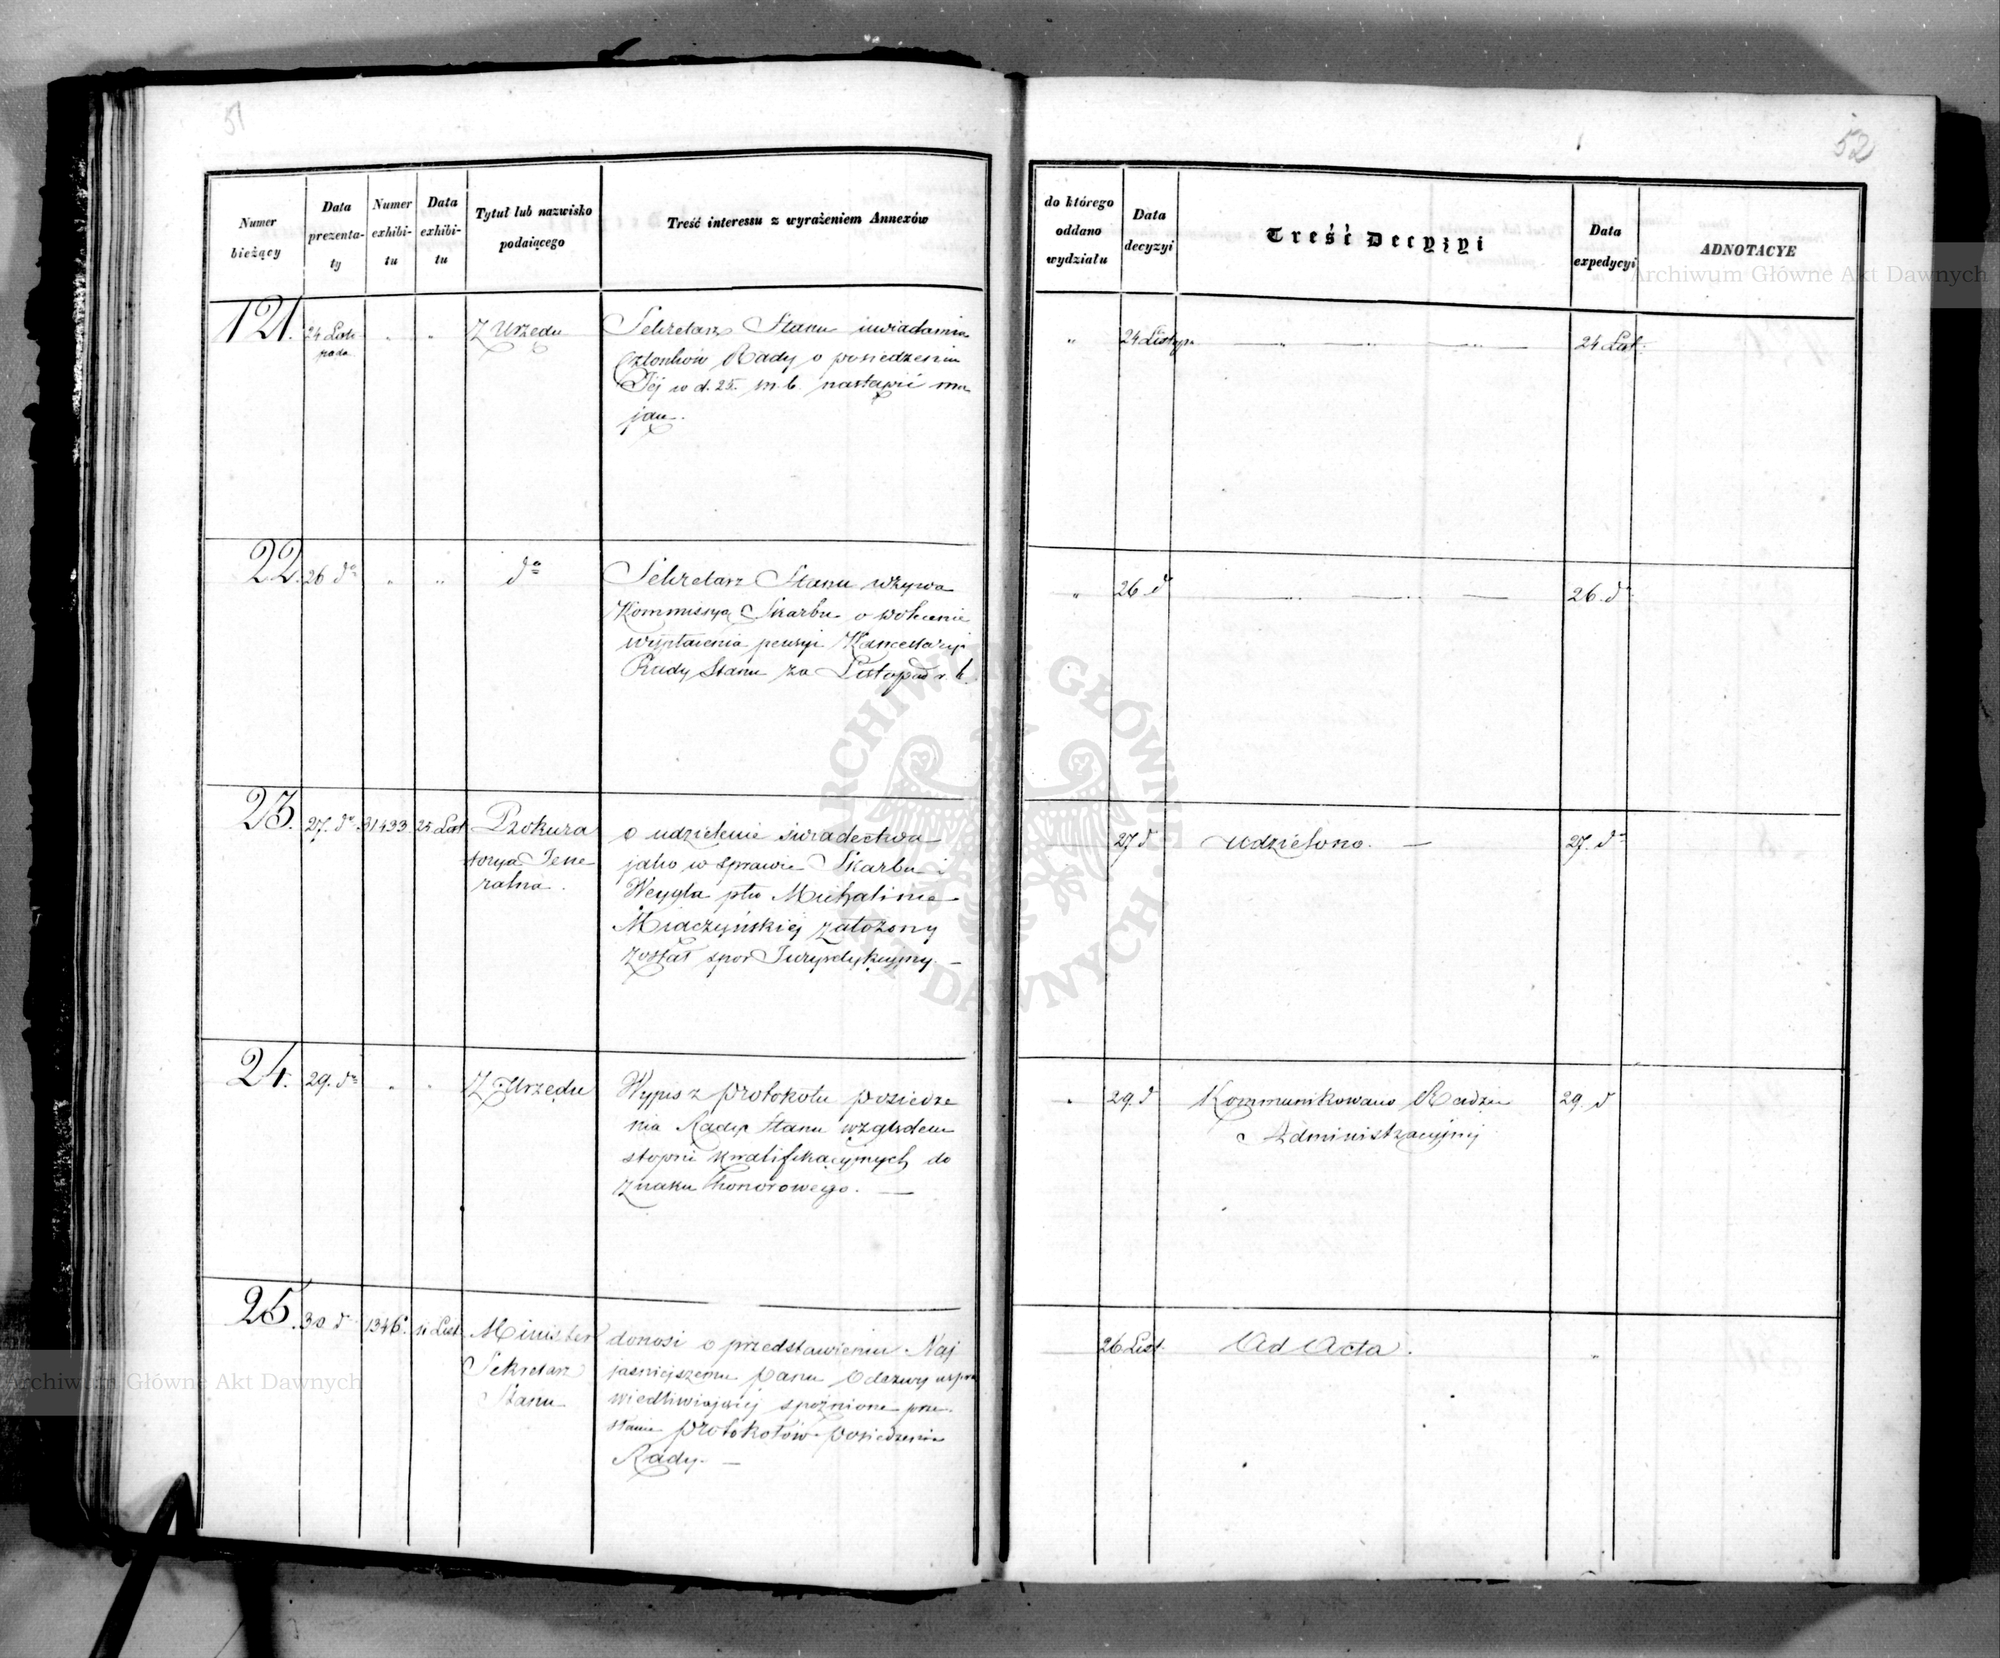 51
Numer
bieżący
Data
prezenta-
ty
Numer
exhibi-
tu
Data
exhibi-
tu
Tytuł lub nazwisko
podaiącego
Treść interessu z wyrażeniem Annexów
121.
24 Listo
pada
"
"
Z Urzędu
Sekretarz Stanu uwiadamia
Członków Rady o posiedzeniu
Jéj w d. 25. m. b. nastąpić ma
jącu.
22.
26 do
"
"
do
Sekretarz Stanu wzywa
Kommissyą Skarbu o
wypłacenia pensyi Kancellaryi
Rady Stanu za Listopad r. b.
23.
27. do
31433
25 List
Prokura
torya Jene
ralna.
o udzielenie świadectwa
jako w sprawie Skarbu i
Weygla ptko Michalinie
Miączyńskiéj założony
został spor Jurysdykcyjny. —
24.
29. do
"
"
Z Urzędu
Wypis z protokołu posiedze
nia Rady Stanu względem
stopni kwalifikacyjnych do
znaku honorowego. —
25.
30 d
1346.
11 List
Minister
Sekretarz
Stanu
donosi o przedstawieniu Naj
jaśniejszemu Panu Odezwy uspra
wiedliwiającéj spóźnione prze
słanie protokołów posiedzenia
Rady. —
52
do którego
oddano
wydziału
Data
decyzyi
Treść Decyzyi
Data
expedycyi
ADNOTACYE
"
24 Listop.
— " — " — " —
24 List.
"
26. d
26. do
27 d
Udzielono. —
27. do
"
29. d
Kommunikowano Radzie
Administracyjnéj
29. d
26 List.
Ad Acta.
"
ARCHIWUM GŁÓWNE AKT DAWNYCH
Archiwum Główne Akt Dawnych
Archiwum Główne Akt Dawnych